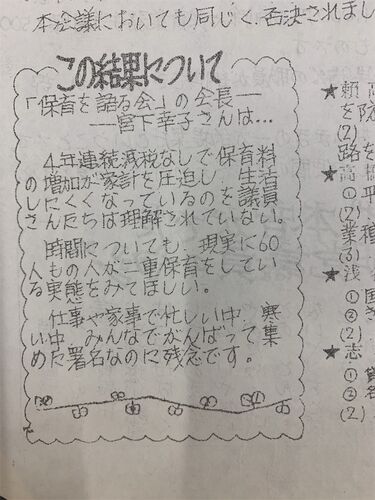 本会議においても同じく、否決されまし
この結果について
「保育を語る会」の会長―
――宮下幸子さんは…
4年連続減税なしで保育料
の増加が家計を圧迫し、生活
しにくくなっているのを議員
さんたちは理解されていない。
時間についても、現実に60
人もの人が二重保育をしてい
る実態をみてほしい。
仕事や家事で忙しい中、寒
い中、みんなでがんばって集
めた署名なのに残念です。
★
を防
(2)
路を
★高橋
①平
(2)
業種
(3)
★浅
①国
②さ
(2)
★志
①賃
②名
(2)